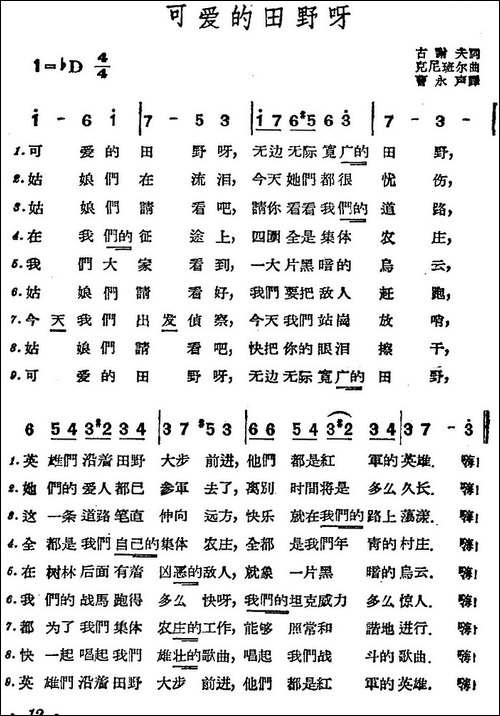 可爱的田野呀
古謝夫詞
1=♭D 4/4
克尼班尔曲
曹永声譯
i - 6 i | 7 - 5 3 | i 7 6 #5 6 3 | 7 - 3 - |
1.可 爱的田 野呀, 无边无际寬广的 田 野,
2.姑 娘們在 流泪, 今天她們都很 忧 伤,
3.姑 娘們請 看吧, 請你看看我們的 道 路,
4.在 我們的征 途上, 四圍全是集体 农 庄,
5.我 們大家 看到, 一大片黑暗的 烏 云,
6.姑 娘們請 看好, 我們要把敌人 赶 跑,
7.今天我們出发偵察, 今天我們站崗 放 哨,
8.姑 娘們請 看吧, 快把你的眼泪 擦 干,
9.可 爱的田 野呀, 无边无际寬广的 田 野,
6 54 3#2 34 | 37 #53 | 66 54 3#2 | 34 37 - 3 ‖
1.英 雄們沿着田野 大步 前进,他們 都是紅 軍的英雄. 嗨!
2.她 們的爱人都已 参軍 去了,离別 时間将是 多么久长. 嗨!
3.这 一条道路笔直 伸向 远方,快乐 就在我們的路上蕩漾. 嗨!
4.全 都是我們自己的集体 农庄,全都 是我們年 青的村庄. 嗨!
5.在 树林后面有着 凶恶的敌人,就象 一片黑 暗的烏云. 嗨!
6.我 們的战馬跑得 多么 快呀,我們的坦克威力 多么惊人. 嗨!
7.都 为了我們集体 农庄的工作,能够 照常和 諧地进行. 嗨!
8.快 一起唱起我們 雄壮的歌曲,唱起 我們战 斗的歌曲. 嗨!
9.英 雄們沿着田野 大步 前进,他們 都是紅 軍的英雄. 嗨!
· 12 ·